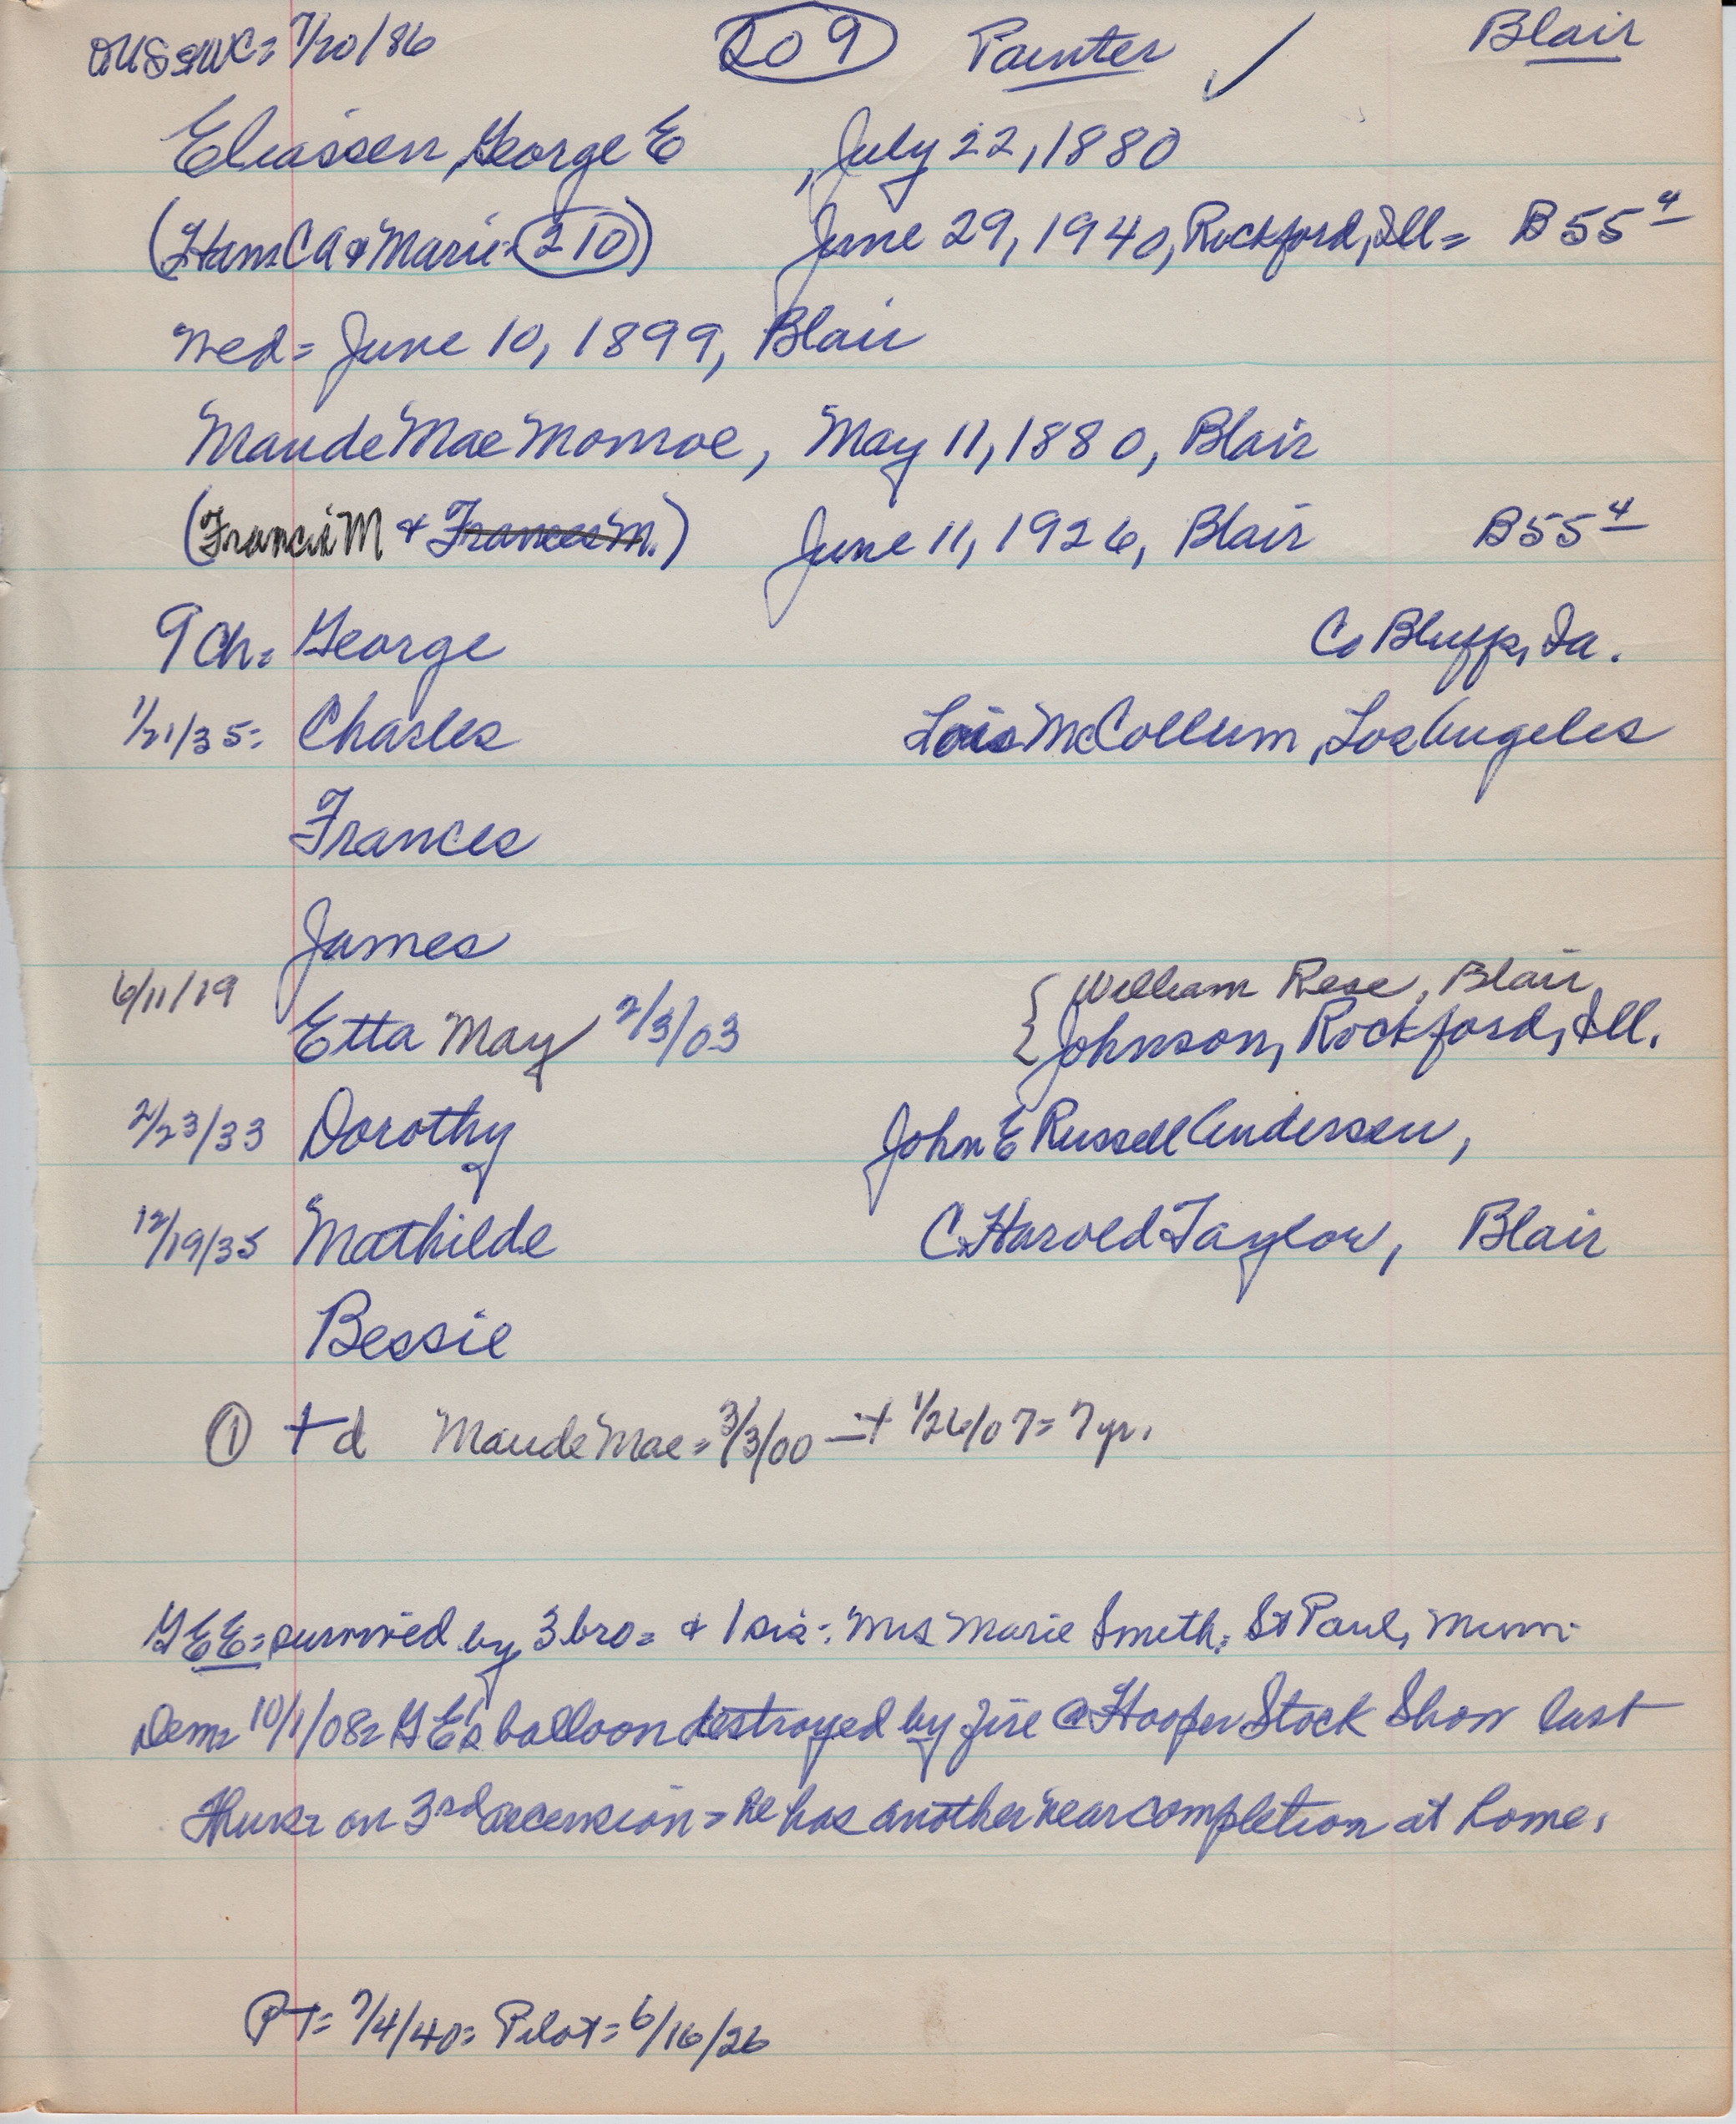 7/20/86 209 Painter ✓ Blair
Eliassen, George E , July 22, 1880
(Hans C A & Marie = 210) June 29, 1940, Rockford, Ill = B 55 4
Wed = June 10, 1899, Blair
Maude Mae Monroe, May 11, 1880, Blair
(Francis M & Frances M.) June 11, 1926, Blair B 55 4
9 Ch = George Co Bluffs, Ia.
1/21/35 = Charles Lois McCollum, Los Angeles
Frances
James
6/11/19 { William Rose, Blair,
Etta May 2/3/03 { Johnson, Rockford, Ill.
2/23/33 Dorothy John E Russell Andersen,
12/19/35 Mathilde C. Harold Taylor, Blair
Bessie
① + d Maude Mae = 3/3/00 – + 1/26/07 = 7 yr.
G E E = survived by 3 bro = & 1 sis = Mrs Marie Smith, St Paul, Minn
Dem = 10/1/08 = G E's balloon destroyed by fire @ Hooper Stock Show last
Thurs = on 3rd ascension = he has another near completion at home.
PT = 7/4/40 = Pilot = 6/16/26